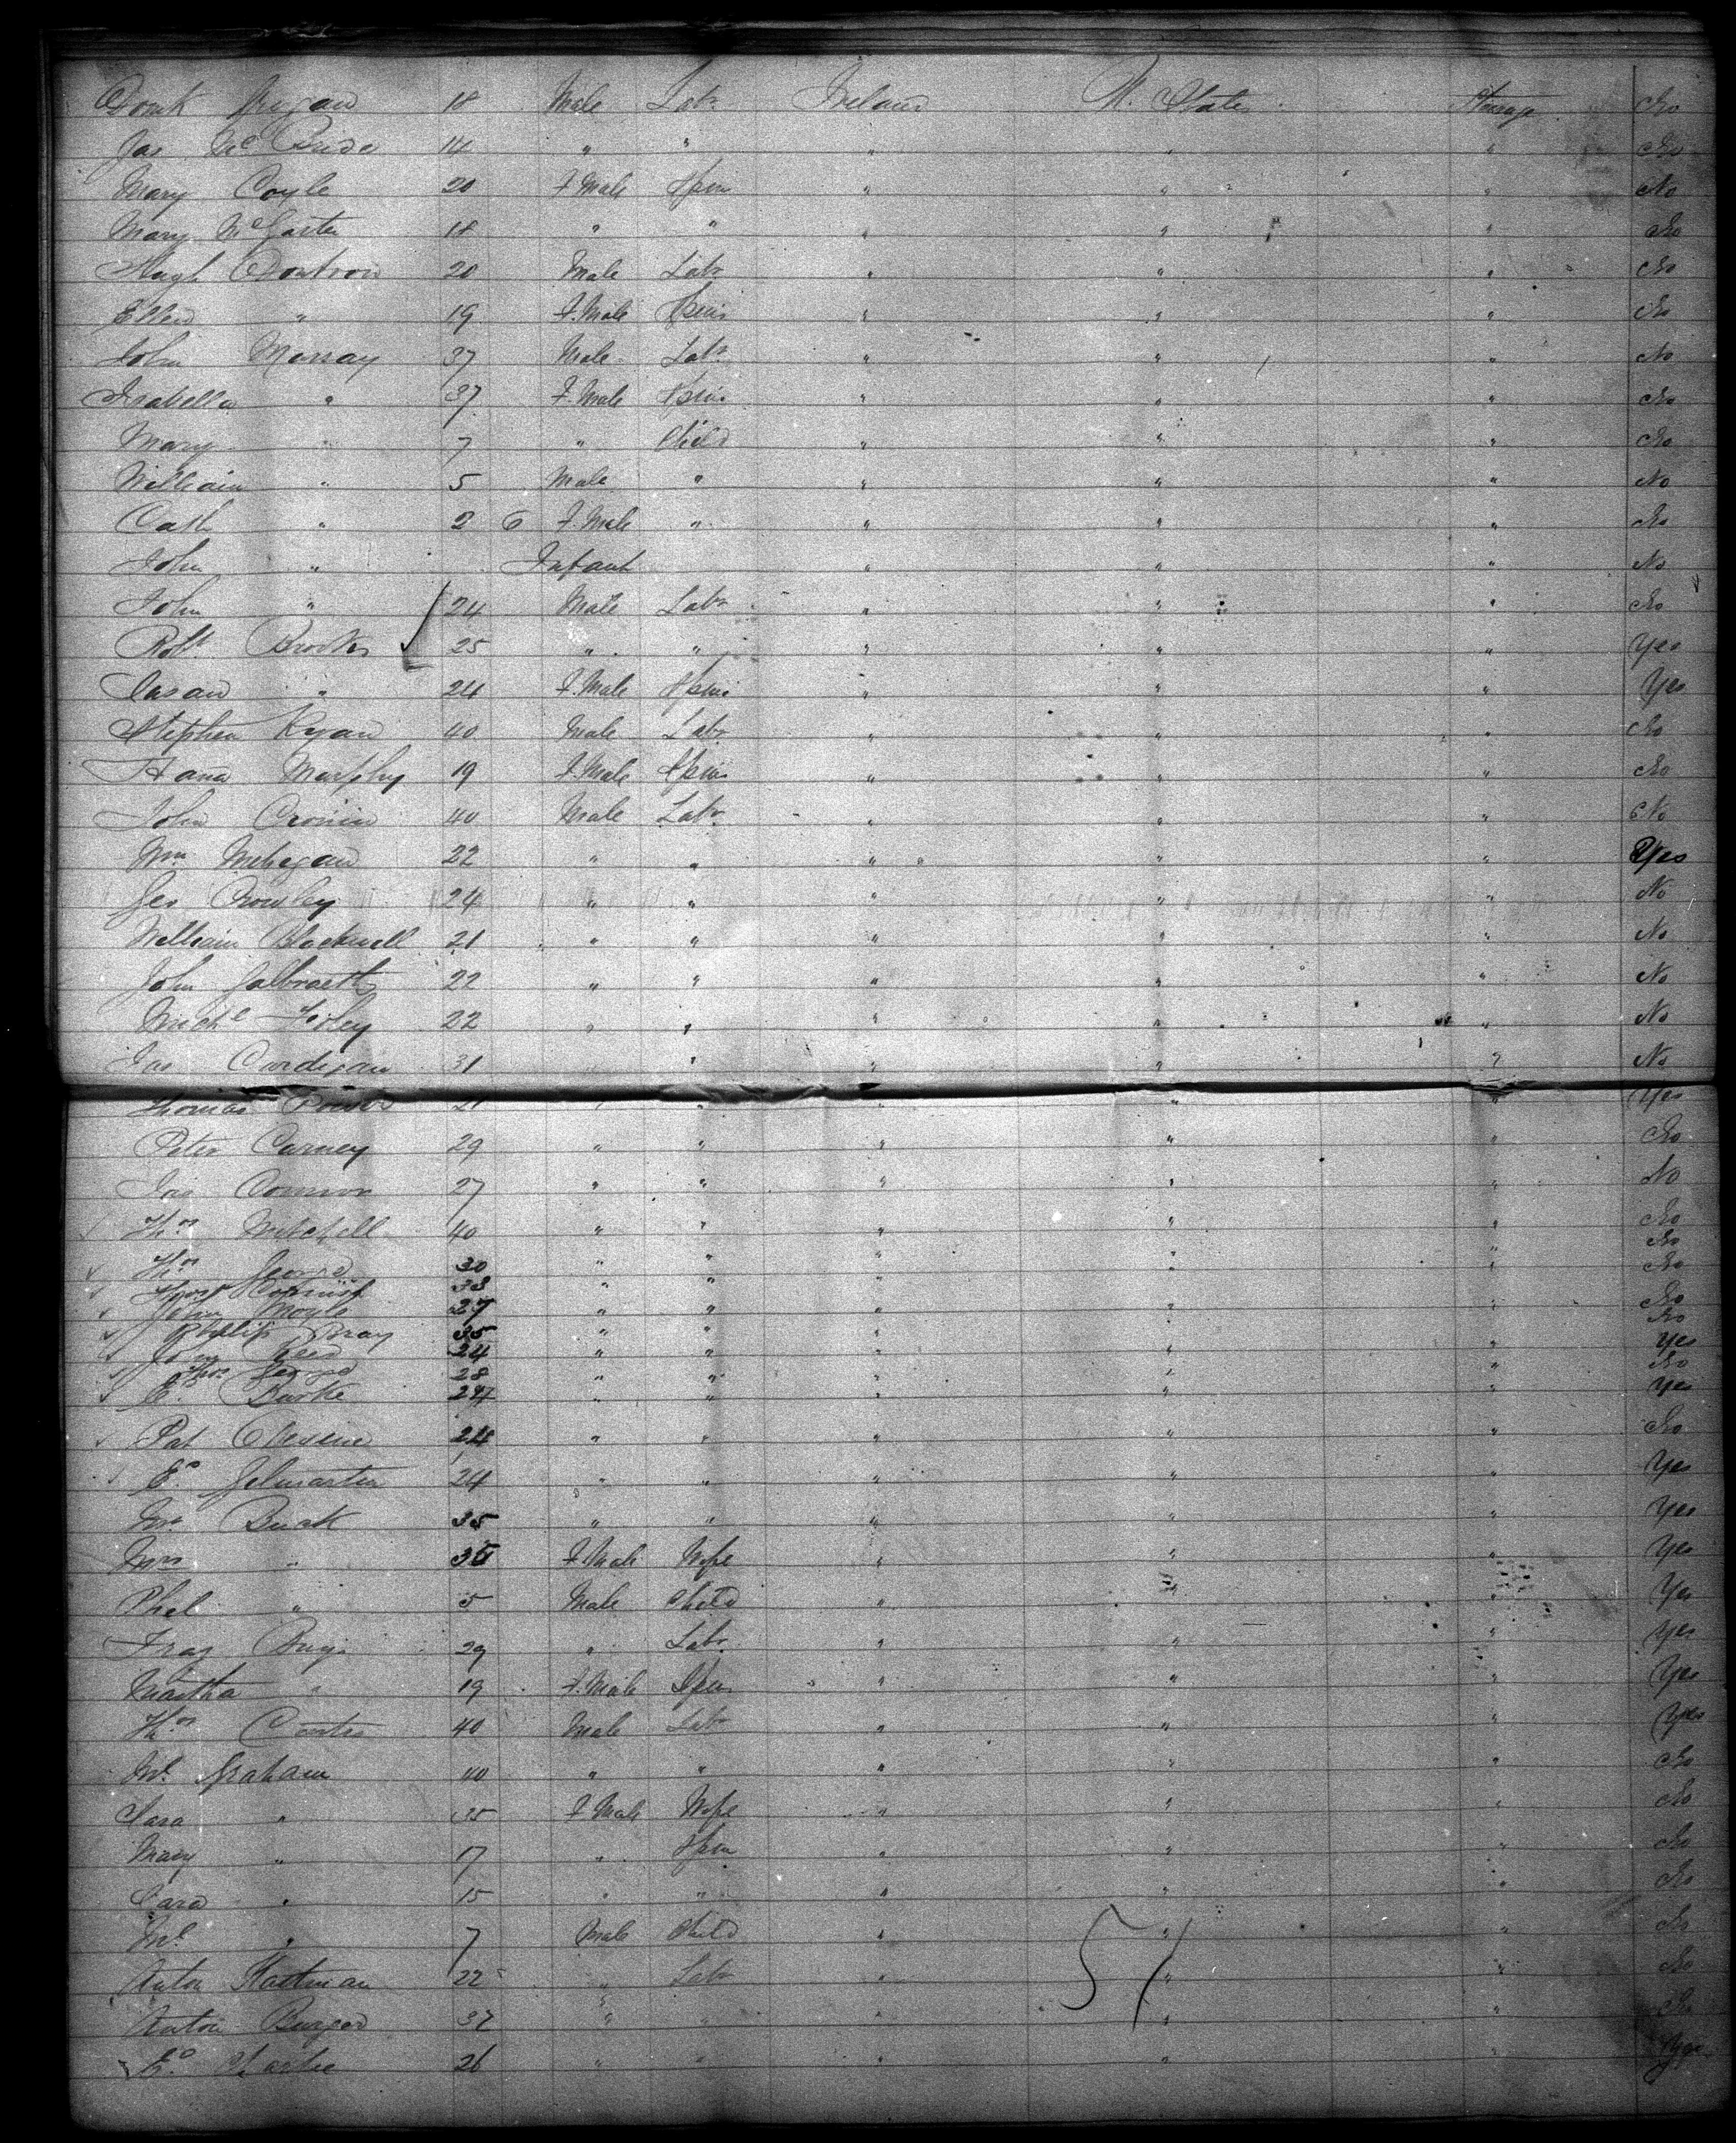 Domk 18 Male Labr Ireland U. States Steerage No
Jas McBride 14 " " " " " No
Mary Coyle 20 F. Male Spin " " " No
Mary 18 " " " " " No
Hugh 20 Male Labr " " " No
Ellen " 19 F. Male Spin " " " No
John Murray 37 Male Labr " " " No
Isabella " 37 F. Male Spin " " " No
Mary " 7 " Child " " " No
William " 5 Male " " " " No
Cath " 2 6 F. Male " " " " No
John " Infant " " " No
John " 24 Male Labr " " " No
Robt Brooks 25 " " " " " Yes
Susan " 24 F. Male Spin " " " Yes
Stephen Ryan 40 Male Labr " " " No
Hana Murphy 19 F. Male Spin " " " No
John Cronin 40 Male Labr " " " No
Wm Mehegan 22 " " " " " Yes
Jer Crowley 24 " " " " " No
William Blackwell 21 " " " " " No
John Galbraeth 22 " " " " " No
Michl Foley 22 " " " " " No
Jas Cardigan 31 " " " " " No
Thomas Power 21 " " " " " Yes
Peter Carney 29 " " " " " No
Jas Connor 27 " " " " " No
Ths Mitchell 40 " " " " " No
Ths George 30 " " " " " No
Thos Cornish 33 " " " " " No
John Moyle 27 " " " " " No
Phillip Bray 35 " " " " " No
John 24 " " " " " Yes
Thos George 28 " " " " " No
Burke 24 " " " " " Yes
Pat 24 " " " " " No
Ed. Gilmartin 24 " " " " " Yes
Mr Buck 35 " " " " " Yes
Mrs " 35 F. Male Wife " " " Yes
Phil " 5 Male Child " " " Yes
29 " Labr " " " Yes
Martha " 19 F. Male Spin " " " Yes
Ths 40 Male Labr " " " Yes
Graham 40 " " " " " No
Sara " 35 F. Male Wife " " " No
Mary " 17 " Spin " " " No
Sara " 15 " " " " " No
" 7 Male Child " " " No
Anton Hartman 22 " Labr " " " No
Anton Burger 37 " " " " " No
Ed. Charlie 26 " " " " " Yes
57